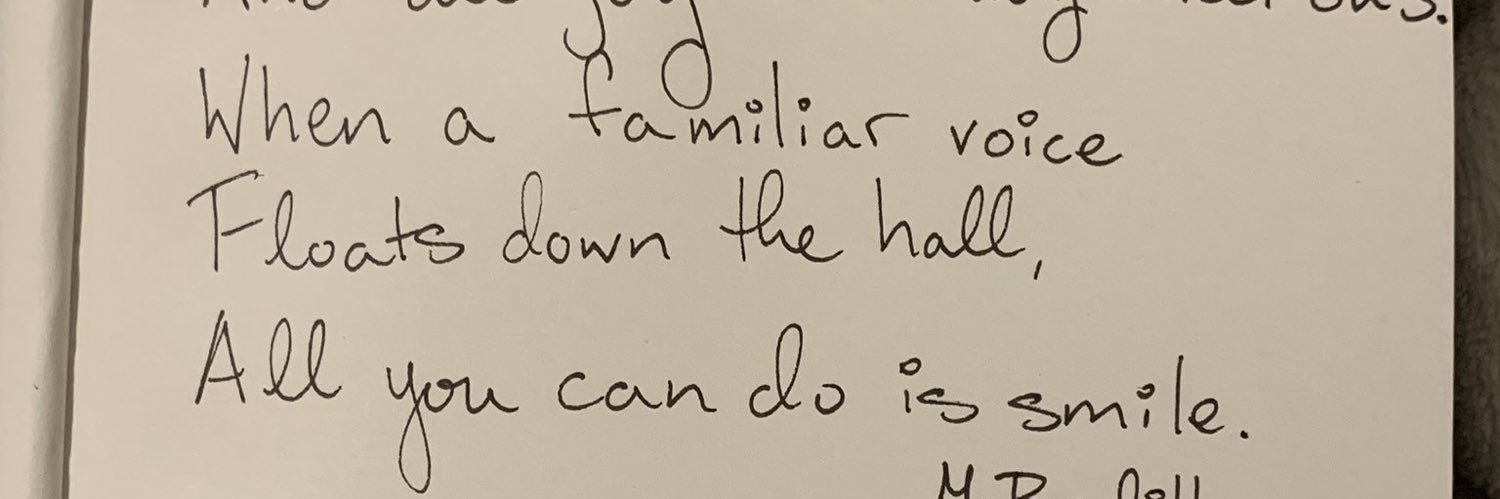 And all
When a familiar voice
Floats down the hall,
All you can do is smile.
M.D.